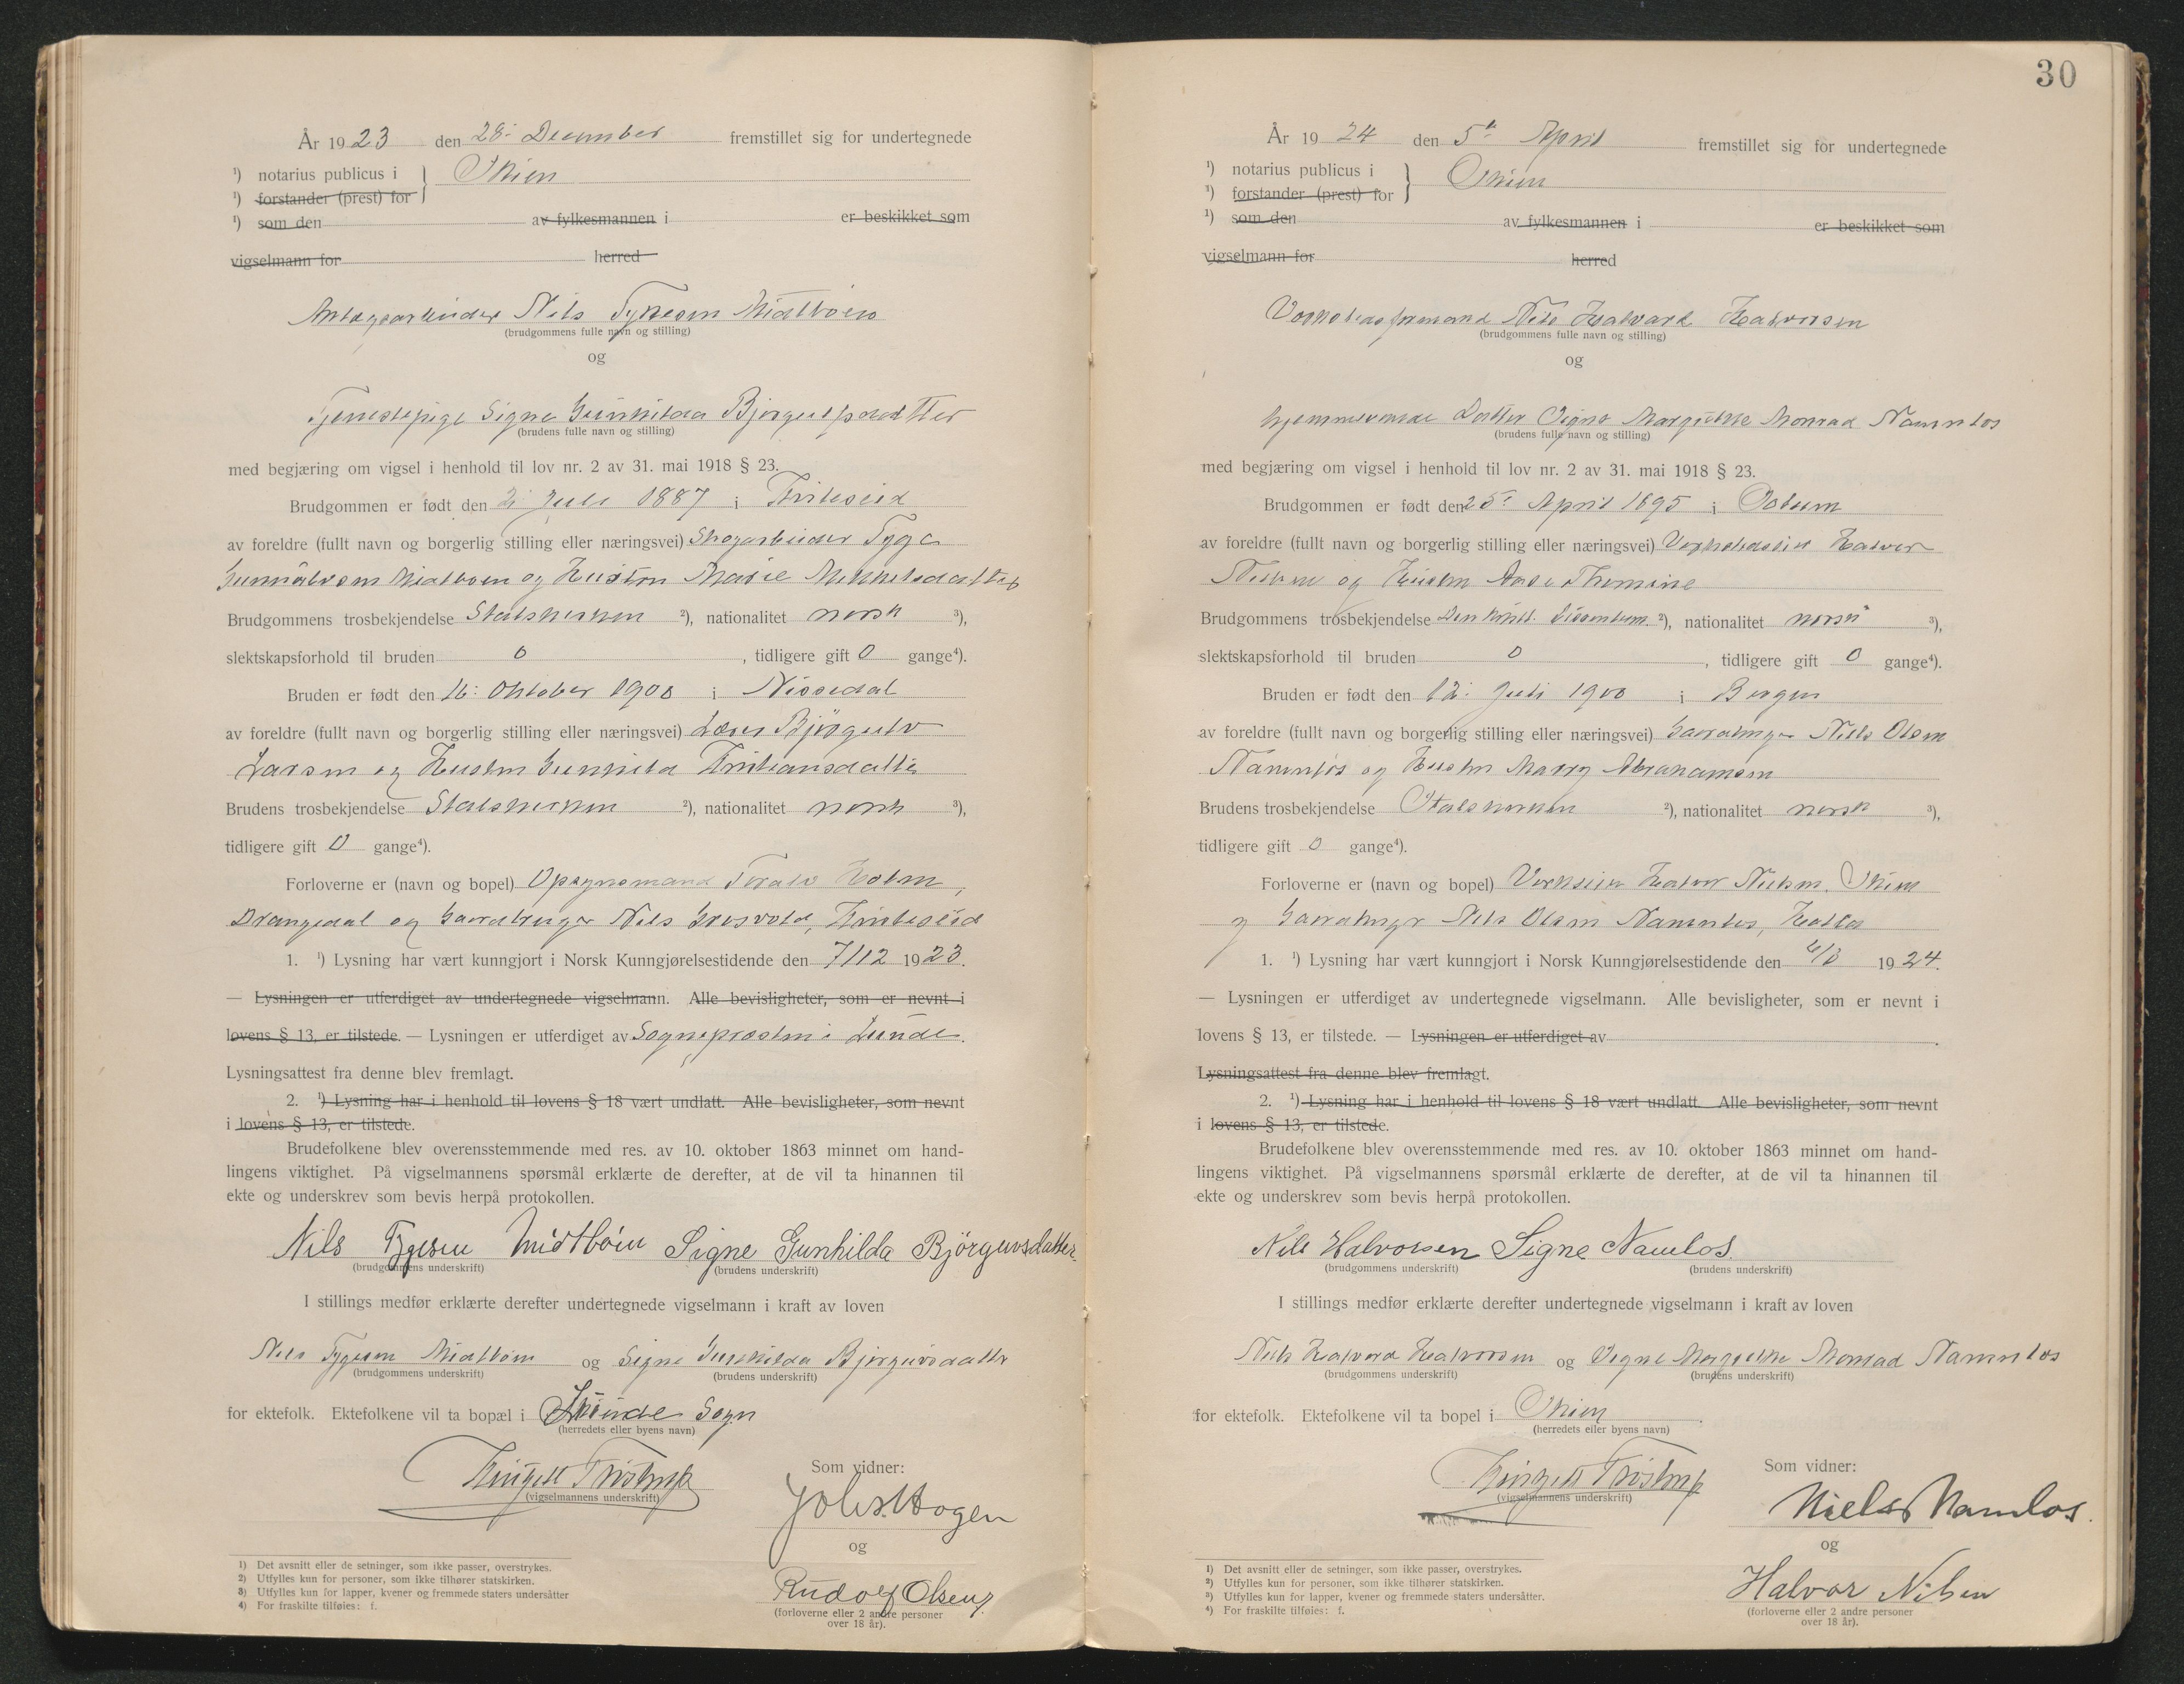 År 1923 den 28. December fremstillet sig for undertegnede
¹) notarius publicus i } Skien
¹) forstander (prest) for
¹) som den av fylkesmannen i er beskikket som
vigselmann for herred
Anlægsarbeider Nils Tygesen Midtbøen
(brudgommens fulle navn og stilling)
og
Tjenestepige Signe Gunhilda Bjørgulfsdatter
(brudens fulle navn og stilling)
med begjæring om vigsel i henhold til lov nr. 2 av 31. mai 1918 § 23.
Brudgommen er født den 2. Juli 1887 i Kviteseid
av foreldre (fullt navn og borgerlig stilling eller næringsvei) Skogarbeider Tyge
Gunnalvsen Midtbøen og Hustru Marie Mikkelsdatter
Brudgommens trosbekjendelse Statskirken ²), nationalitet norsk ³),
slektskapsforhold til bruden 0, tidligere gift 0 gange⁴).
Bruden er født den 16. Oktober 1900 i Nissedal
av foreldre (fullt navn og borgerlig stilling eller næringsvei) Lærer Bjørgulv
Larsen og Hustru Gunhild Kristiansdatter
Brudens trosbekjendelse Statskirken ²), nationalitet norsk ³),
tidligere gift 0 gange⁴).
Forloverne er (navn og bopel) Opsynsmand Toralv Holm,
Drangedal og Gaardbruger Nils Grosvold, Kviteseid
1. ¹) Lysning har vært kunngjort i Norsk Kunngjørelsestidende den 7/12 1923.
— Lysningen er utferdiget av undertegnede vigselmann. Alle bevisligheter, som er nevnt i
lovens § 13, er tilstede. — Lysningen er utferdiget av Sogneprosten i Lunde.
Lysningsattest fra denne blev fremlagt.
2. ¹) Lysning har i henhold til lovens § 18 vært undlatt. Alle bevisligheter, som nevnt
i lovens § 13, er tilstede.
Brudefolkene blev overensstemmende med res. av 10. oktober 1863 minnet om hand-
lingens viktighet. På vigselmannens spørsmål erklærte de derefter, at de vil ta hinannen til
ekte og underskrev som bevis herpå protokollen.
Nils Tygesen Midtbøen Signe Gunhilda Bjørgulvsdatter
(brudgommens underskrift) (brudens underskrift)
I stillings medfør erklærte derefter undertegnede vigselmann i kraft av loven
Nils Tygesen Midtbøen og Signe Gunhilda Bjørgulvsdatter
(brudgommens underskrift) (brudens underskrift)
for ektefolk. Ektefolkene vil ta bopæl i Lunde Sogn
(herredets eller byens navn)
(vigselmannens underskrift)
Som vidner:
Johs. Hogen
og
Rudolf Olsen
(forloverne eller 2 andre personer
over 18 år).
1) Det avsnitt eller de setninger, som ikke passer, overstrykes.
2) Utfylles kun for personer, som ikke tilhører statskirken.
3) Utfylles kun for lapper, kvener og fremmede staters undersåtter
4) For fraskilte tilføies: f.
30
År 1924 den 5te April fremstillet sig for undertegnede
¹) notarius publicus i } Skien
¹) forstander (prest) for
¹) som den av fylkesmannen i er beskikket som
vigselmann for herred
Verkstedsformand Nils Halvard Halvorsen
(brudgommens fulle navn og stilling)
og
hjemmeværende Datter Signe Margrethe Monrad Namnlos
(brudens fulle navn og stilling)
med begjæring om vigsel i henhold til lov nr. 2 av 31. mai 1918 § 23.
Brudgommen er født den 25. April 1895 i Solum
av foreldre (fullt navn og borgerlig stilling eller næringsvei) Halvor
Nielsen og Hustru Thomine
Brudgommens trosbekjendelse Den kristl. Dissentum. ²), nationalitet norsk ³),
slektskapsforhold til bruden 0, tidligere gift 0 gange⁴).
Bruden er født den 12. Juli 1900 i Bergen
av foreldre (fullt navn og borgerlig stilling eller næringsvei) Gaardbruger Niels Olsen
Namnlos og Hustru Marry Abrahamsen
Brudens trosbekjendelse Statskirken ²), nationalitet norsk ³),
tidligere gift 0 gange⁴).
Forloverne er (navn og bopel) Halvor Nielsen, Skien
og Gaardbruger Nils Olsen Namnlos, Holla
1. ¹) Lysning har vært kunngjort i Norsk Kunngjørelsestidende den /3 1924.
— Lysningen er utferdiget av undertegnede vigselmann. Alle bevisligheter, som er nevnt i
lovens § 13, er tilstede. — Lysningen er utferdiget av .
Lysningsattest fra denne blev fremlagt.
2. ¹) Lysning har i henhold til lovens § 18 vært undlatt. Alle bevisligheter, som nevnt
i lovens § 13, er tilstede.
Brudefolkene blev overensstemmende med res. av 10. oktober 1863 minnet om hand-
lingens viktighet. På vigselmannens spørsmål erklærte de derefter, at de vil ta hinannen til
ekte og underskrev som bevis herpå protokollen.
Nils Halvorsen Signe Namlos
(brudgommens underskrift) (brudens underskrift)
I stillings medfør erklærte derefter undertegnede vigselmann i kraft av loven
Niels Halvard Halvorsen og Signe Margrethe Monrad Namnlos
(brudgommens underskrift) (brudens underskrift)
for ektefolk. Ektefolkene vil ta bopel i Skien.
(herredets eller byens navn)
(vigselmannens underskrift)
Som vidner:
Niels Namlos.
og
Halvor Nilsen
(forloverne eller 2 andre personer
over 18 år).
1) Det avsnitt eller de setninger, som ikke passer, overstrykes.
2) Utfylles kun for personer, som ikke tilhører statskirken.
3) Utfylles kun for lapper, kvener og fremmede staters undersåtter.
4) For fraskilte tilføies: f.